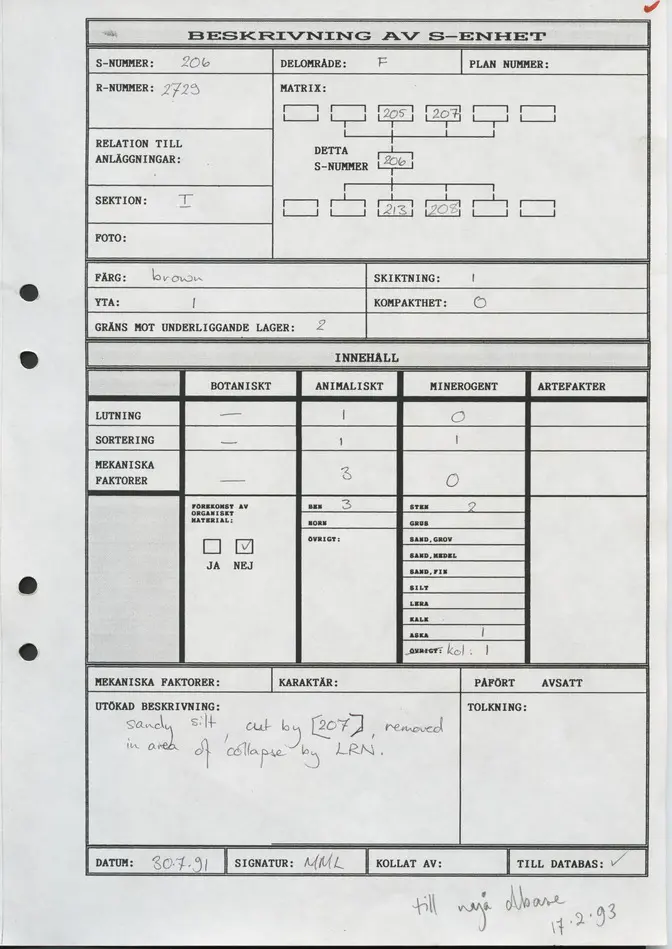 BESKRIVNING AV S-ENHET
S-NUMMER: 206 DELOMRÅDE: F PLAN NUMMER:
R-NUMMER: 2729 MATRIX:
205 207
RELATION TILL
ANLÄGGNINGAR:
DETTA
S-NUMMER 206
SEKTION: I
213 208
FOTO:
FÄRG: brown SKIKTNING: 1
YTA: 1 KOMPAKTHET: 0
GRÄNS MOT UNDERLIGGANDE LAGER: 2
INNEHÅLL
BOTANISKT ANIMALISKT MINEROGENT ARTEFAKTER
LUTNING — 1 0
SORTERING — 1 1
MEKANISKA
FAKTORER — 3 0
FÖREKOMST AV
ORGANISKT
MATERIAL:
JA NEJ
BEN 3
HORN
ÖVRIGT:
STEN 2
GRUS
SAND, GROV
SAND, MEDEL
SAND, FIN
SILT
LERA
KALK
ASKA 1
ÖVRIGT: kol: 1
MEKANISKA FAKTORER: KARAKTÄR: PÅFÖRT AVSATT
UTÖKAD BESKRIVNING: TOLKNING:
sandy silt, cut by [207], removed
in area of collapse by LRN.
DATUM: 30.7.91 SIGNATUR: MML KOLLAT AV: TILL DATABAS: ✓
till nya dbase
17.2.93